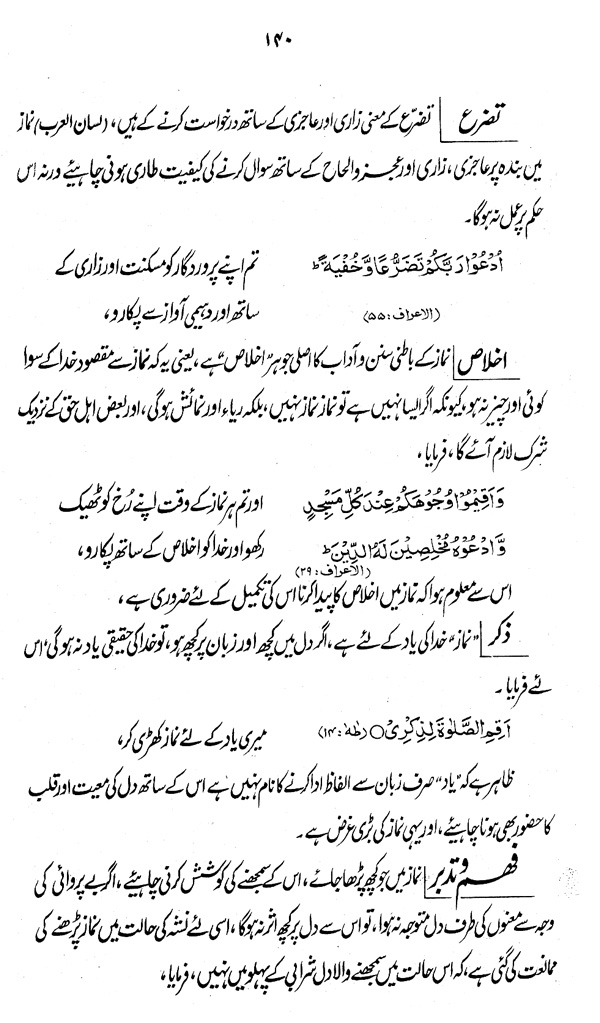 ۱۴۰
تضرع تضرّع کے معنی زاری اور عاجزی کے ساتھ درخواست کرنے کے ہیں، (لسان العرب) نماز
میں بندہ پر عاجزی، زاری اور عجز و الحاح کے ساتھ سوال کرنے کی کیفیت طاری ہونی چاہیئے ورنہ اس
حکم پر عمل نہ ہوگا۔
اُدْعُوْا رَبَّكُمْ تَضَرُّعًا وَّخُفْيَةً ط تم اپنے پروردگار کو مسکنت اور زاری کے
(الاعراف: ۵۵) ساتھ اور دھیمی آواز سے پکارو،
اخلاص نماز کے باطنی سنن و آداب کا اصلی جوہر "اخلاص" ہے، یعنی یہ کہ نماز سے مقصود خدا کے سوا
کوئی اور چیز نہ ہو، کیونکہ اگر ایسا نہیں ہے تو نماز نماز نہیں، بلکہ ریاء اور نمائش ہوگی، اور بعض اہل حق کے نزدیک
شرک لازم آئے گا، فرمایا،
وَاَقِيْمُوْا وُجُوْهَكُمْ عِنْدَ كُلِّ مَسْجِدٍ اور تم ہر نماز کے وقت اپنے رُخ کو ٹھیک
وَّادْعُوْهُ مُخْلِصِيْنَ لَهُ الدِّيْنَ ط رکھو اور خدا کو اخلاص کے ساتھ پکارو،
(الاعراف: ۲۹)
اس سے معلوم ہوا کہ نماز میں اخلاص کا پیدا کرنا اس کی تکمیل کے لئے ضروری ہے،
ذکر "نماز" خدا کی یاد کے لئے ہے، اگر دل میں کچھ اور زبان پر کچھ ہو، تو خدا کی حقیقی یاد نہ ہوگی، اس
لئے فرمایا۔
اَقِمِ الصَّلٰوةَ لِذِكْرِيْ ○ (طٰهٰ: ۱۴) میری یاد کے لئے نماز کھڑی کر،
ظاہر ہے کہ "یاد" صرف زبان سے الفاظ ادا کرنے کا نام نہیں ہے اس کے ساتھ دل کی معیت اور قلب
کا حضور بھی ہونا چاہیئے، اور یہی نماز کی بڑی غرض ہے۔
فہم و تدبر نماز میں جو کچھ پڑھا جائے، اس کے سمجھنے کی کوشش کرنی چاہیئے، اگر بے پروائی کی
وجہ سے معنوں کی طرف دل متوجہ نہ ہوا، تو اس سے دل پر کچھ اثر نہ ہوگا، اسی لئے نشہ کی حالت میں نماز پڑھنے کی
ممانعت کی گئی ہے، کہ اس حالت میں سمجھنے والا دل شرابی کے پہلو میں نہیں، فرمایا،